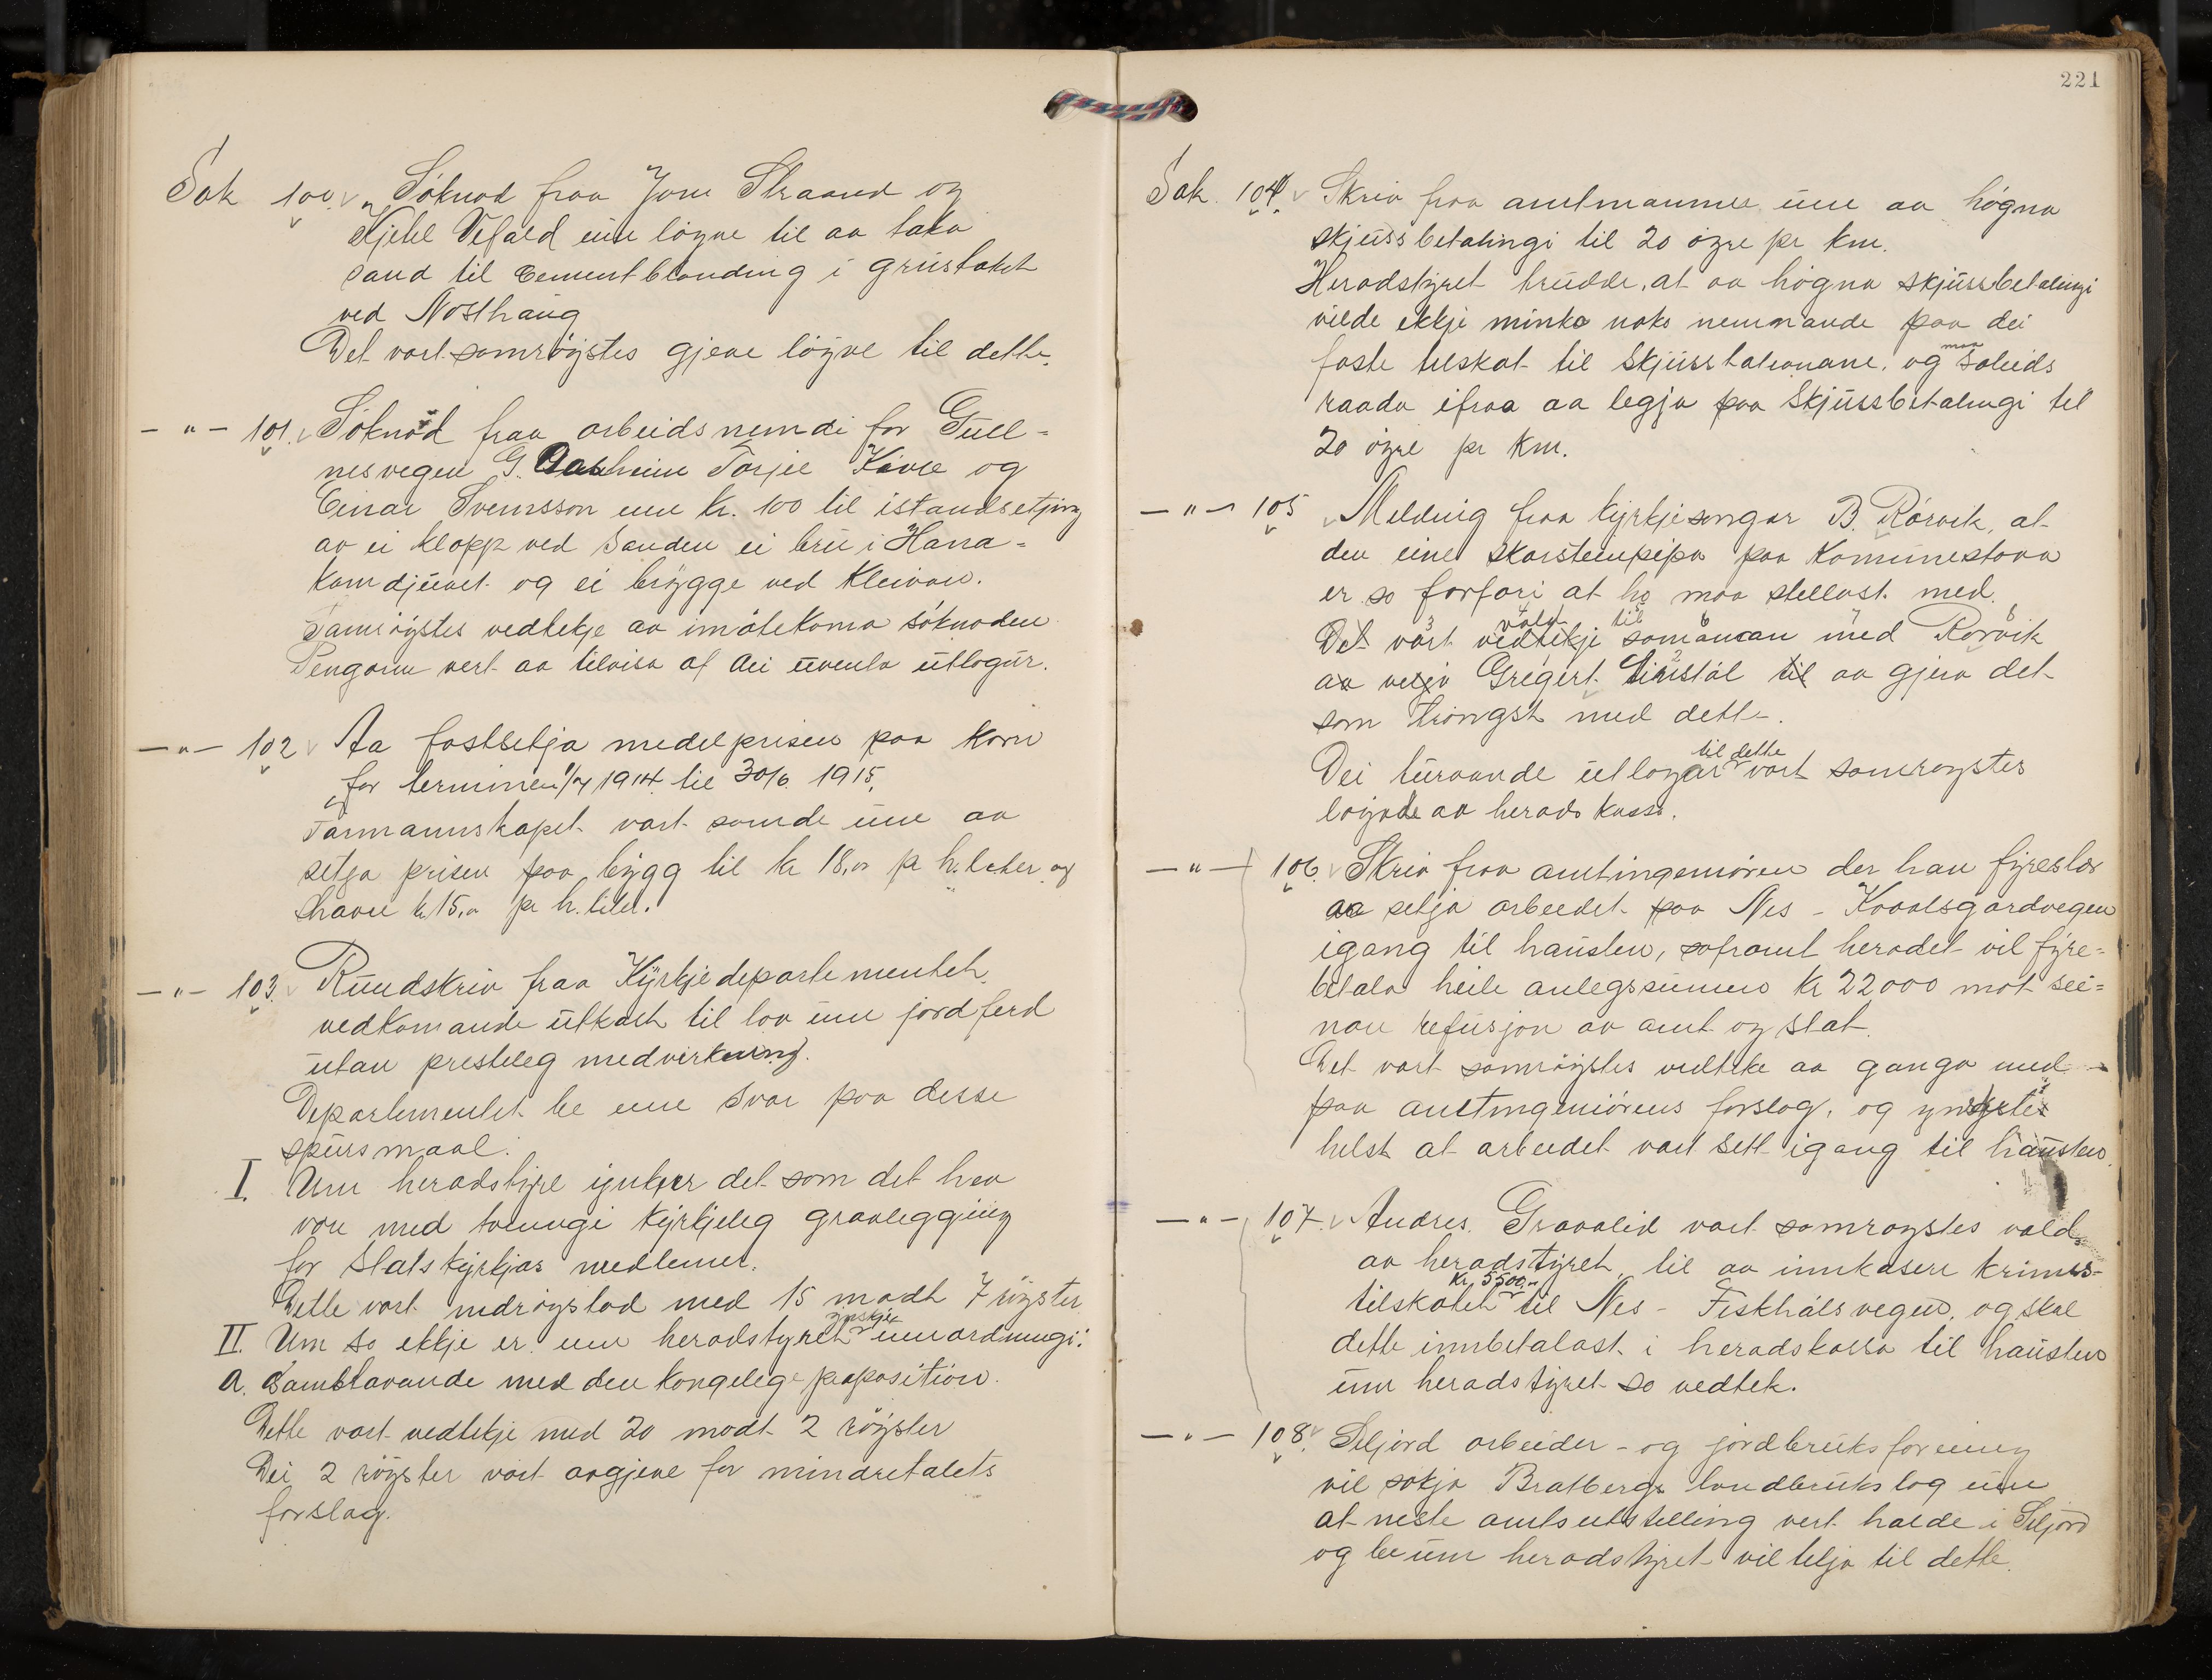 Sak 100. Söknad fraa Jone Straand og
Kjetel Vefald um löyve til aa taka
sand til Cementblanding i grustaket
ved Nosthaug
Det vart samröystes gjeve löyve til dette.
-"- 101. Söknad fraa arbeidsnemdi for Gull-
nesvegen G. Torjei og
Einar Svensson um kr. 100 til istandsetjing
av ei klopp ved Sanden ei bru i Hana-
kamdjuvet og ei brygge ved Kleivan.
Samröystes vedtekje aa imötekoma söknaden
Pengarne vert aa tilvisa af dei uventa utlogur.
-"- 102 Aa fastsetja medelprisen paa korn
for terminen 1/7 1914 til 30/6 1915.
Formannskapet vart samde um aa
setja prisen paa bygg til kr 18,00 pr h.leter og
havre kr 15,00 pr h. liter.
-"- 103. Rundskriv fraa Kyrkjedepartementet
vedkomande utkast til lov um jordferd
utan presteleg medverknng.
Departementet be um svar paa desse
spursmaal.
I. Um heradstyre ynskjer det som det hev
vore med tvungi kyrkjeleg gravlegging
for Statskyrkjas medlemer.
Dette vart nedröystad med 15 modt 7 röyster
II. Um so ekkje er um heradstyret ynskjer umordnungi:
a. Samblavande med den kongelege proposition.
Dette vart vedtekje med 20 modt 2 röyster
Dei 2 röyster vart avgjeve for mindretalets
forslag.
221
Sak. 104. Skriv fraa amtmannen um aa högna
skjussbetalingi til 20 öyre pr km.
Heradstyret trudde, at aa högna skjussbetalingi
vilde ekkje minka noko nemnande paa dei
faste tilskot til Skjusstationane, og maa soleids
raada ifraa aa legja paa Skjussbetalingi til
20 öyre pr km.
-"- 105 Melding fraa kyrkjesongar B. Rörvik, at
den eine skorsteinpipa paa Komunestova
er so forfari at ho maa stellast med.
Det vart vedtekji vald til samanan med Rörvik
aa velja Gregert til aa gjera det
som trengst med dette.
Dei turvande utlogar til dette vart samröystes
löyvde av heradskassa.
-"- 106. Skriv fraa amtingeniören der han fyreslær
aa setja arbeidet paa Nes - Kvaalsgardvegen
igang til hausten, soframt heradet vil fyre-
betala heile anlegssummen kr 22000 mot sei-
nare refusjon av amt og stat.
Det vart samröystes vedteke aa ganga med
paa amtingeniörens forslag, og ynskjte
helst at arbeidet vart sett igang til hausten.
-"- 107. Andres Graaalid vart samröystes vald
av heradstyret til aa innkasere krins-
tilskotet kr 5500,00 til Nes - Fiskhalsvegen, og skal
dette innbetalast i heradskassa til hausten
um heradstyret so vedtek.
-"- 108. Seljord arbeider- og jordbruksforeining
vil sökja Bratbergs landbrukslag um
at neste amtsutstelling vert halde i Seljord
og be um heradstyret vil telja til dette.